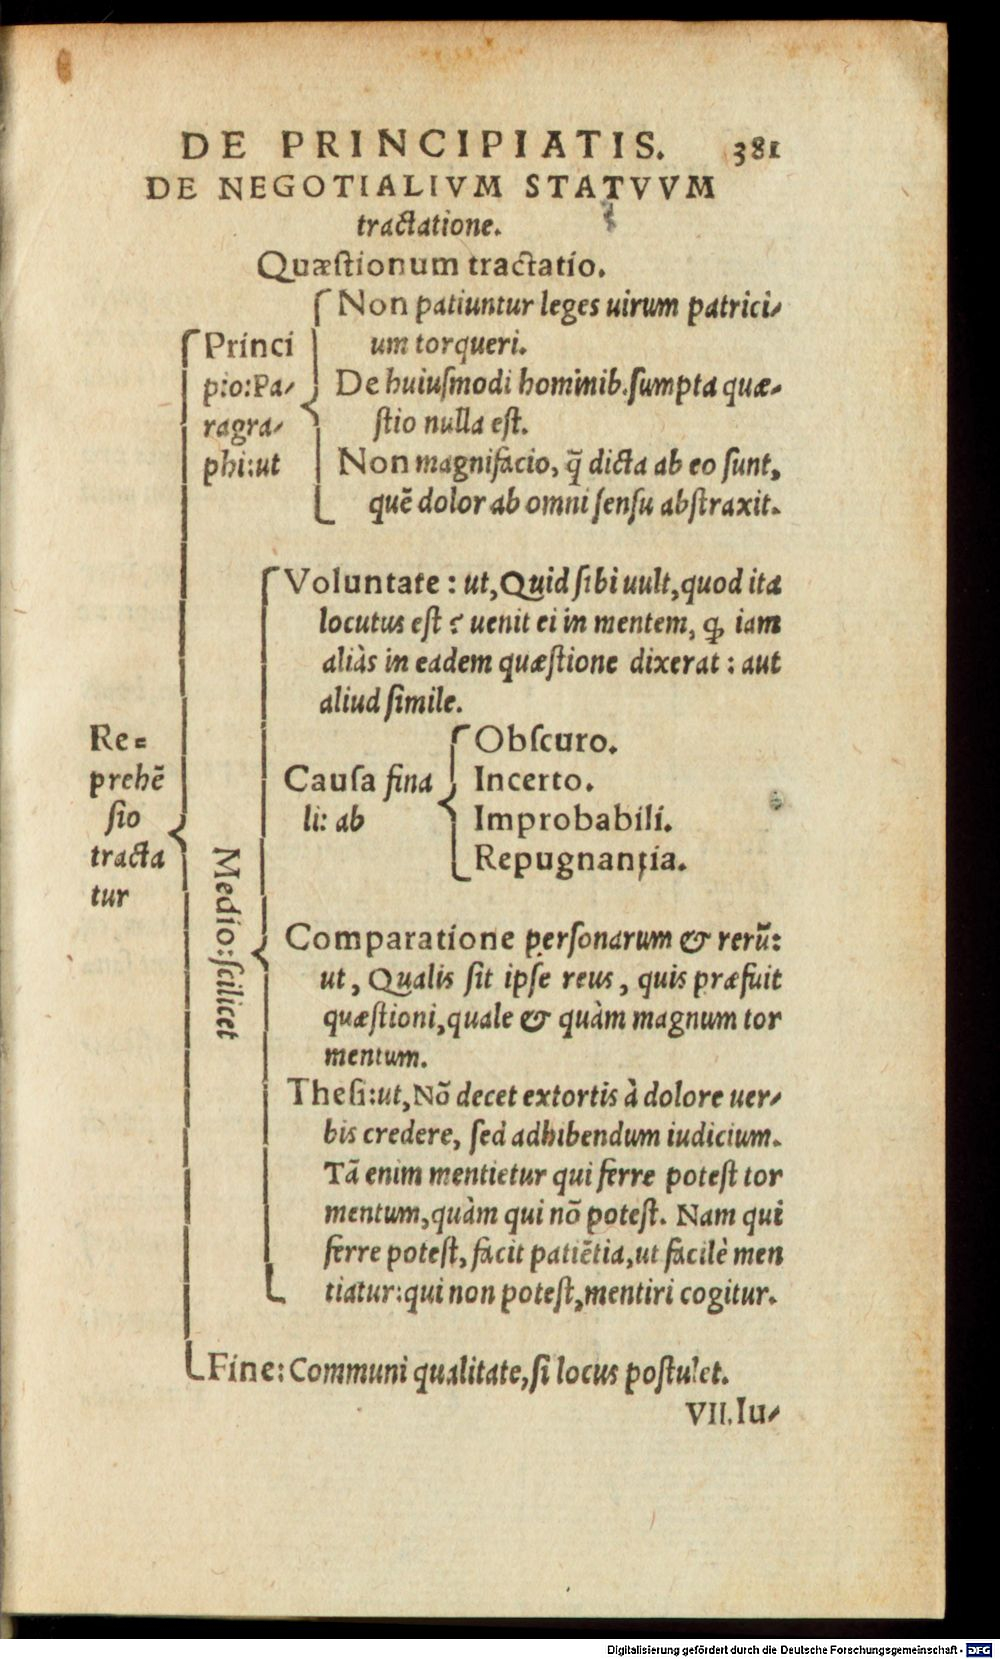 DE PRINCIPIATIS. 381
DE NEGOTIALIVM STATVVM
tractatione.
Quæstionum tractatio.
Princi
pio:Pa-
ragra-
phi:ut
Non patiuntur leges uirum patrici-
um torqueri.
De huiusmodi hominib.sumpta quæ-
stio nulla est.
Non magnifacio, q̃ dicta ab eo sunt,
quẽ dolor ab omni sensu abstraxit.
Re=
prehẽ
sio
tracta
tur
Medio:scilicet
Voluntate: ut, Quid sibi uult, quod ita
locutus est? uenit ei in mentem, ꝙ iam
aliàs in eadem quæstione dixerat: aut
aliud simile.
Causa fina
li: ab
Obscuro.
Incerto.
Improbabili.
Repugnantia.
Comparatione personarum & rerũ:
ut, Qualis sit ipse reus, quis præfuit
quæstioni, quale & quàm magnum tor
mentum.
Thesi:ut, Nõ decet extortis à dolore uer-
bis credere, sed adhibendum iudicium.
Tã enim mentietur qui ferre potest tor
mentum, quàm qui nõ potest. Nam qui
ferre potest, facit patiẽtia, ut facilè men
tiatur:qui non potest, mentiri cogitur.
Fine: Communi qualitate, si locus postulet.
VII. Iu-
Digitalisierung gefördert durch die Deutsche Forschungsgemeinschaft - DFG